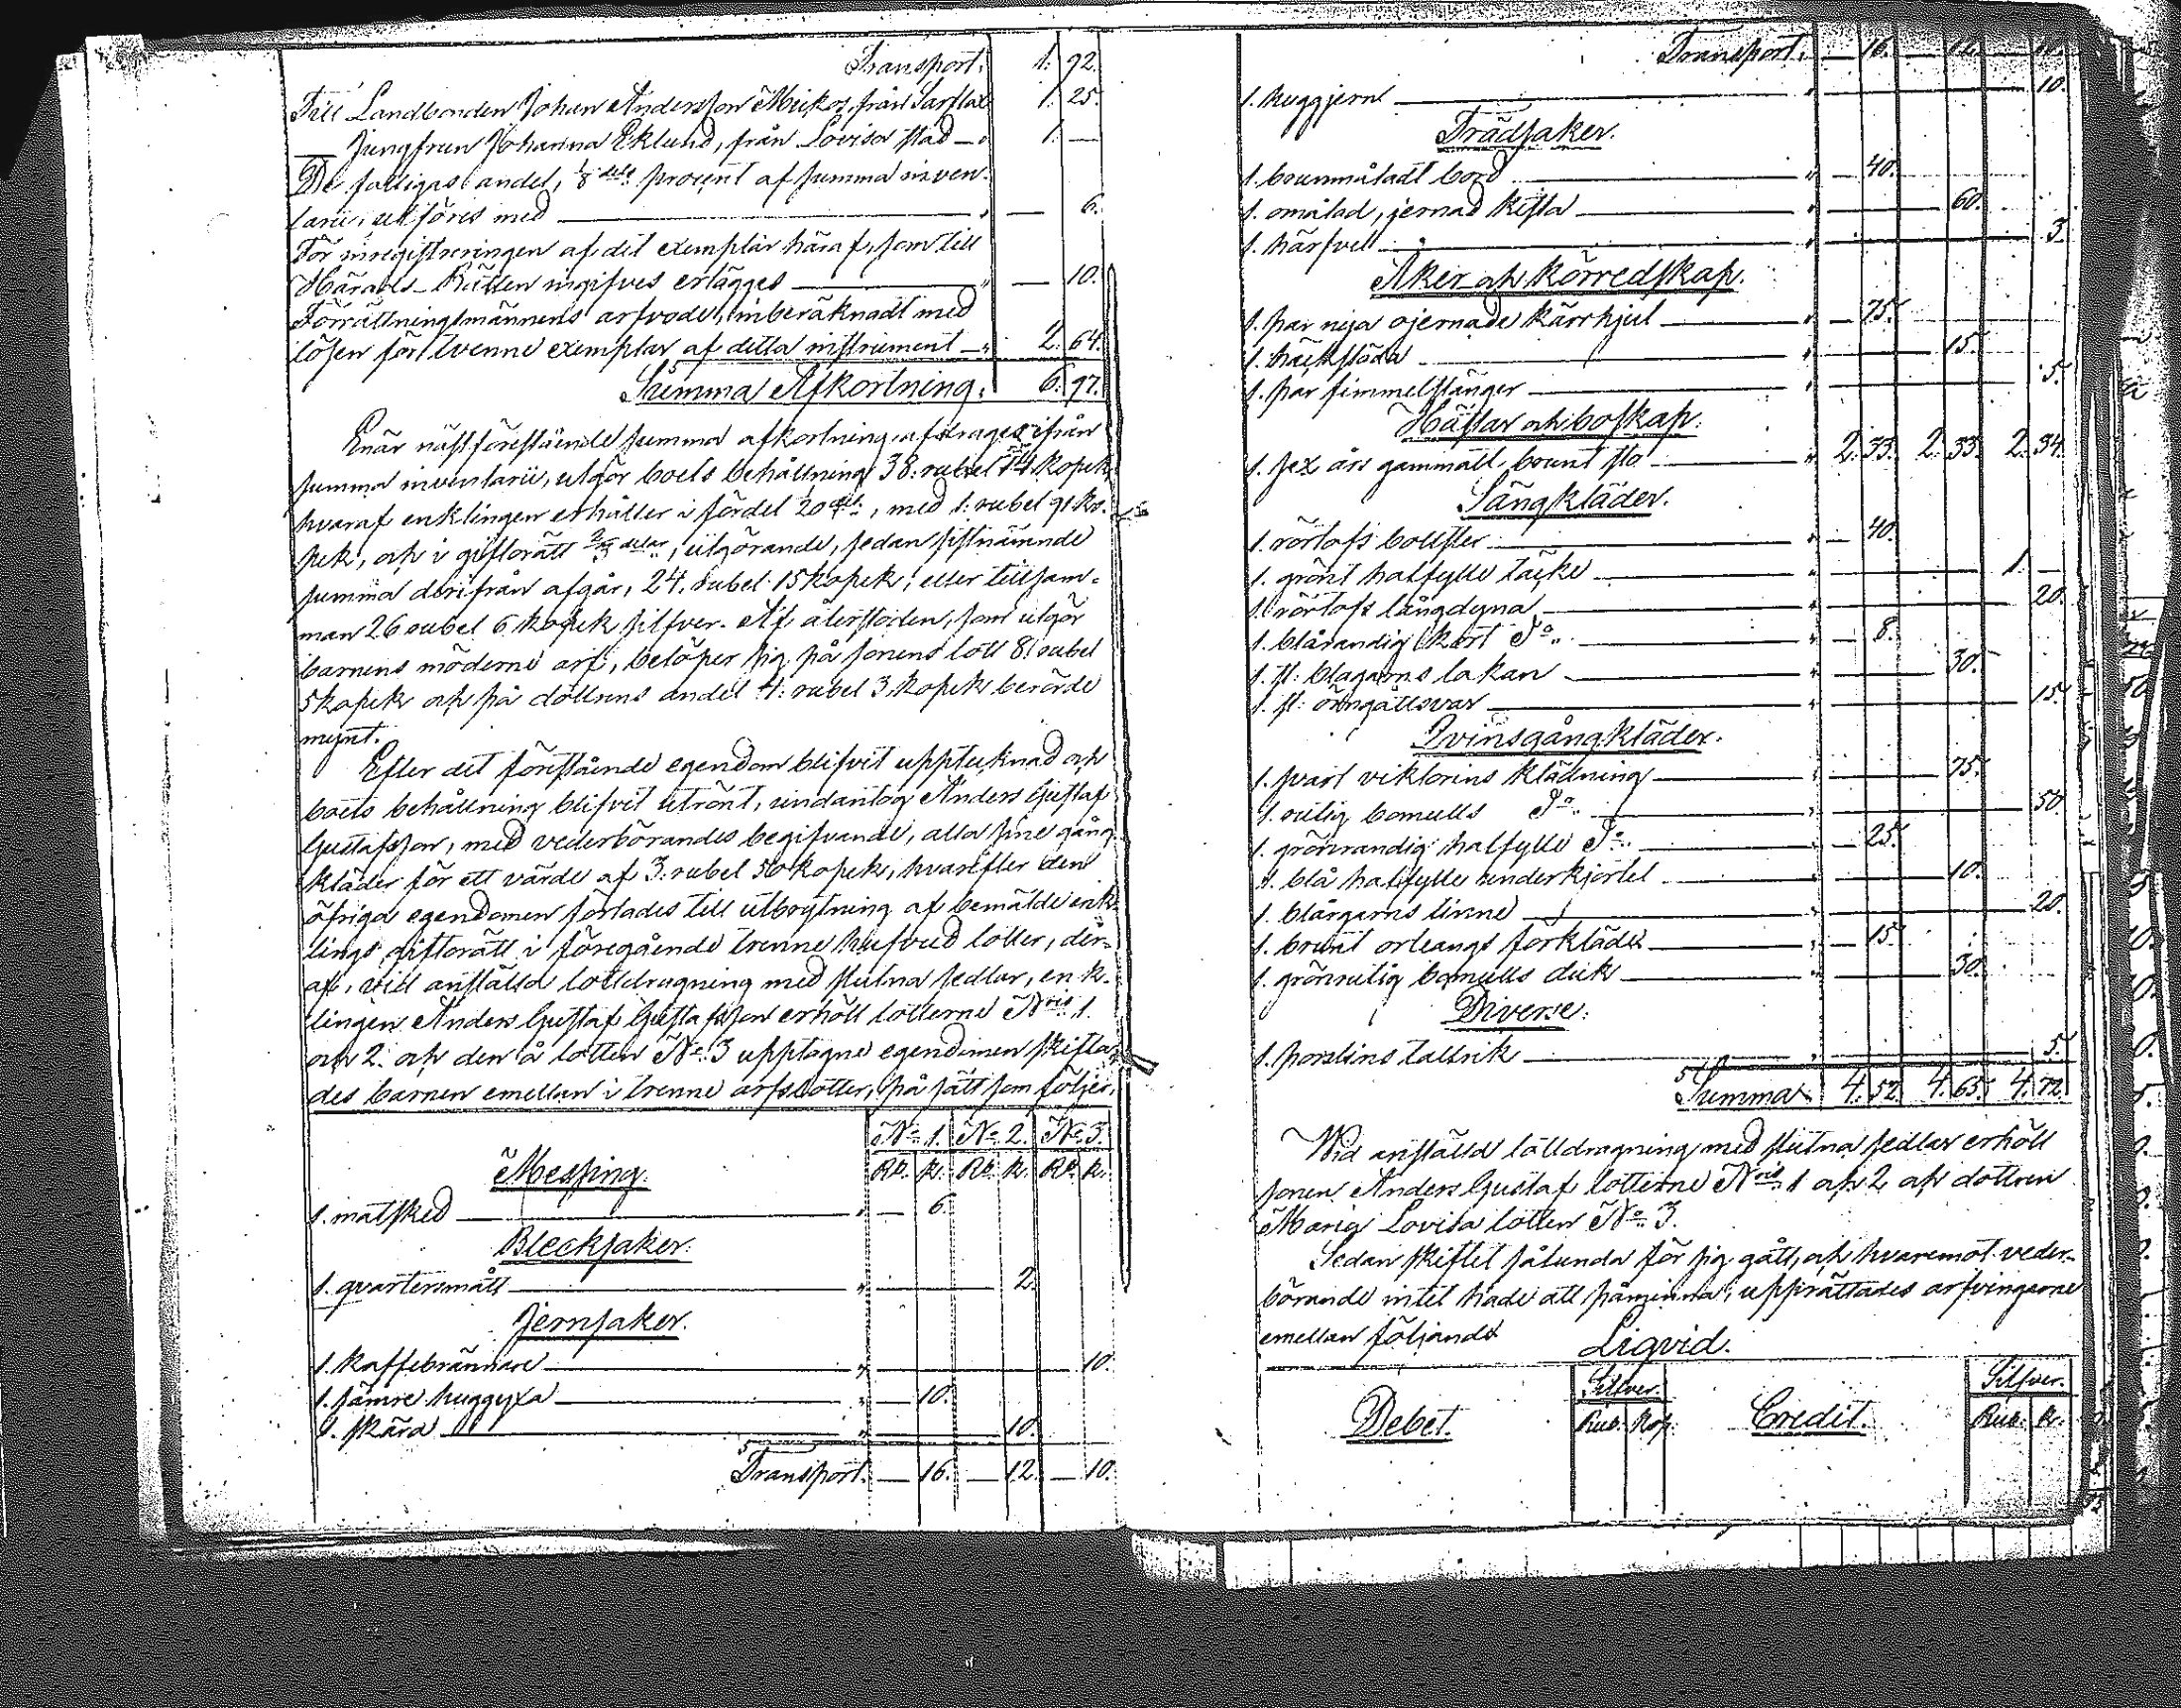 Transport. 1. 92.
Till Landbonden Johan Andersson Mickos, från Sarflax 1. 25.
— Jungfrun Johanna Eklund, från Lovisa stad — " 1. —
De fattigas andel, 1/8 dels procent af summa inven-
tarii, utföres med — " — 6.
För inregistreringen af det exemplar häraf, som till
Härads-Rätten ingifves erlägges — " — 10.
Förrättningsmännens arfvode, inberäknadt med
lösen för tvenne exemplar af detta instrument — " 2. 64.
Summa Afkortning. 6. 97.
Enär nästförestående summa afkortning afdrages ifrån
summa inventarii, utgör boets behållning 38. rubel 14. kopek
hvaraf enklingen erhåller i fördel 20del:, med 1. rubel 91 ko-
pek, och i giftorätt 2/3 delar, utgörande, sedan sistnämnde
summa derifrån afgår, 24. rubel 15 kopek; eller tillsam-
man 26 rubel 6. kopek silfver. Af återstoden, som utgör
barnens möderne arf, belöper sig på sonens lott 8. rubel
5 kopek och på dottrens andel 4. rubel 3. kopek berörde
mynt.
Efter det förestående egendom blifvit upptecknad och
boets behållning blifvit utrönt, undantog Anders Gustaf
Gustafsson, med vederbörandes begifvande, alla sine gång-
kläder för ett värde af 3. rubel 50 kopek, hvarefter den
öfriga egendomen förlades till utbrytning af bemälde enk-
lings giftorätt i föregående trenne hufvud lotter, där-
af, vid anställd lottdragning med slutna sedlar, enk-
lingen Anders Gustaf Gustafsson erhöll lotterne Nris 1.
och 2. och den å lotten No. 3 upptagne egendomen skifta-
des barnen emellan i trenne arfslotter, på sätt som följer.
No. 1. No. 2. No. 3.
Messing. Rb. k. Rb. k. Rb. k.
1. matsked — " — 6.
Blecksaker.
1. qvartersmått — " — 2.
Jernsaker.
1. kaffebrännare — " — 10.
1. sämre huggyxa — " — 10.
1. skära — " — 10.
Transport. — 16. — 12. — 10.
Transport. — 16. — 12. — 10.
1. huggjern — " — 10.
Trädsaker.
1. brunmåladt bord — " — 40.
1. omålad, jernad kista — " — 60.
1. härfvel — " — 3.
Åker och körredskap.
1. par nya ojernade kärrhjul — " — 75.
1. — " — 15.
1. par fimmelstänger — " — 5.
Hästar och boskap.
1. sex års gammalt, brunt sto — " 2. 33. 2. 33. 2. 34.
Sängkläder.
1. rörtofs bolster — " — 40.
1. grönt halfylle täcke — " 1. —
1. rörtofs långdyna — " — 20.
1. blårandig kort Do. — " — 8.
1. st: blagarns lakan — " — 30.
1. st: örngåttsvar — " — 15.
Qvinsgångkläder.
1. svart viktorins klädning — " — 75.
1. rutig bomulls Do. — " — 50.
1. grönrandig halfylle Do. — " — 25.
1. blå halfylle underkjortel — " — 10.
1. blårgarns linne — " — 20.
1. brunt orleangs förkläde — " — 15.
1. grönrutig bomulls duk — " — 30.
Diverse.
1. porslins tallrik — " — 5.
Summa 4. 52. 4. 65. 4. 72.
Wid anställd lottdragning med slutna sedlar erhöll
sonen Anders Gustaf lotterne Nris 1 och 2 och dottren
Maria Lovisa lotten No. 3.
Sedan skiftet sålunda för sig gått, och hvaremot veder-
börande intet hade att påminna, upprättades arfvingarne
emellan följande Liqvid.
Silfver. Silfver.
Debet. Rub. Kop. Credit. Rub. k.